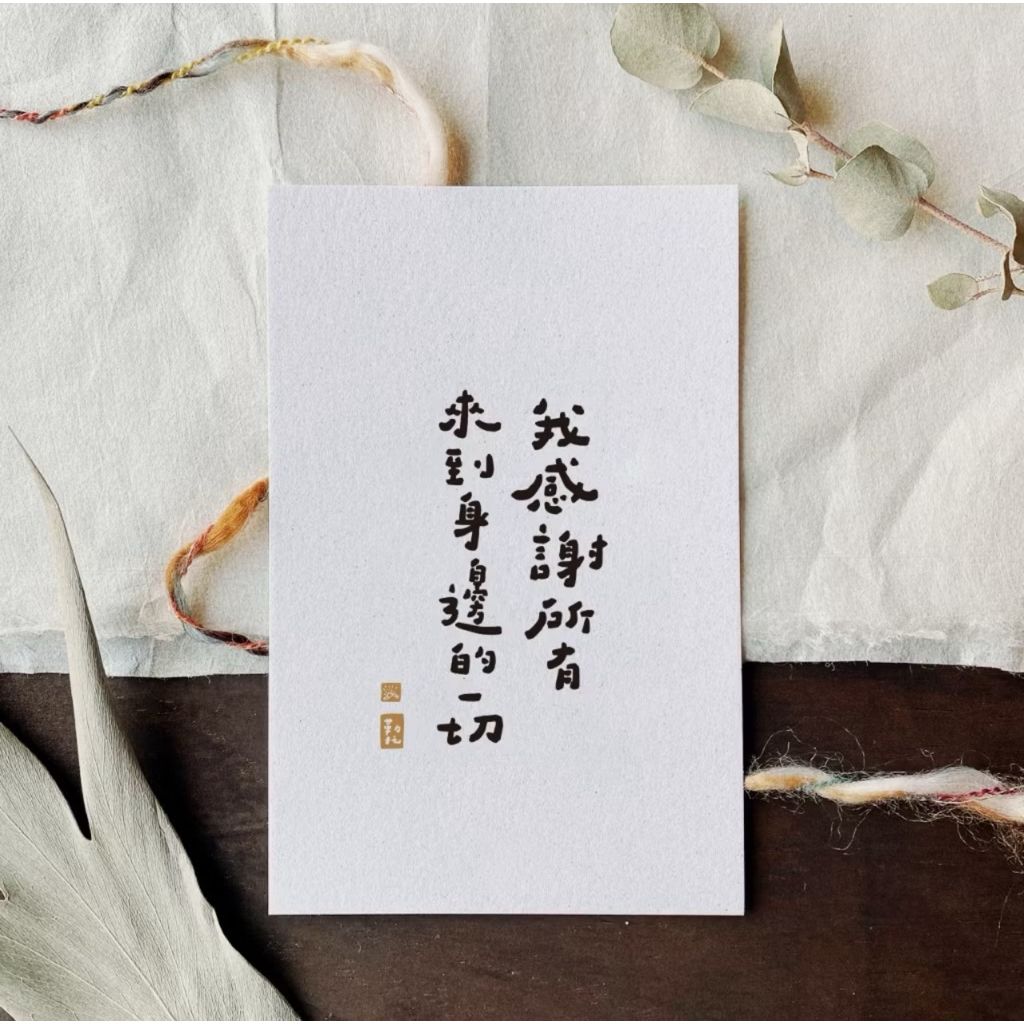 我感謝所有
來到身邊的一切